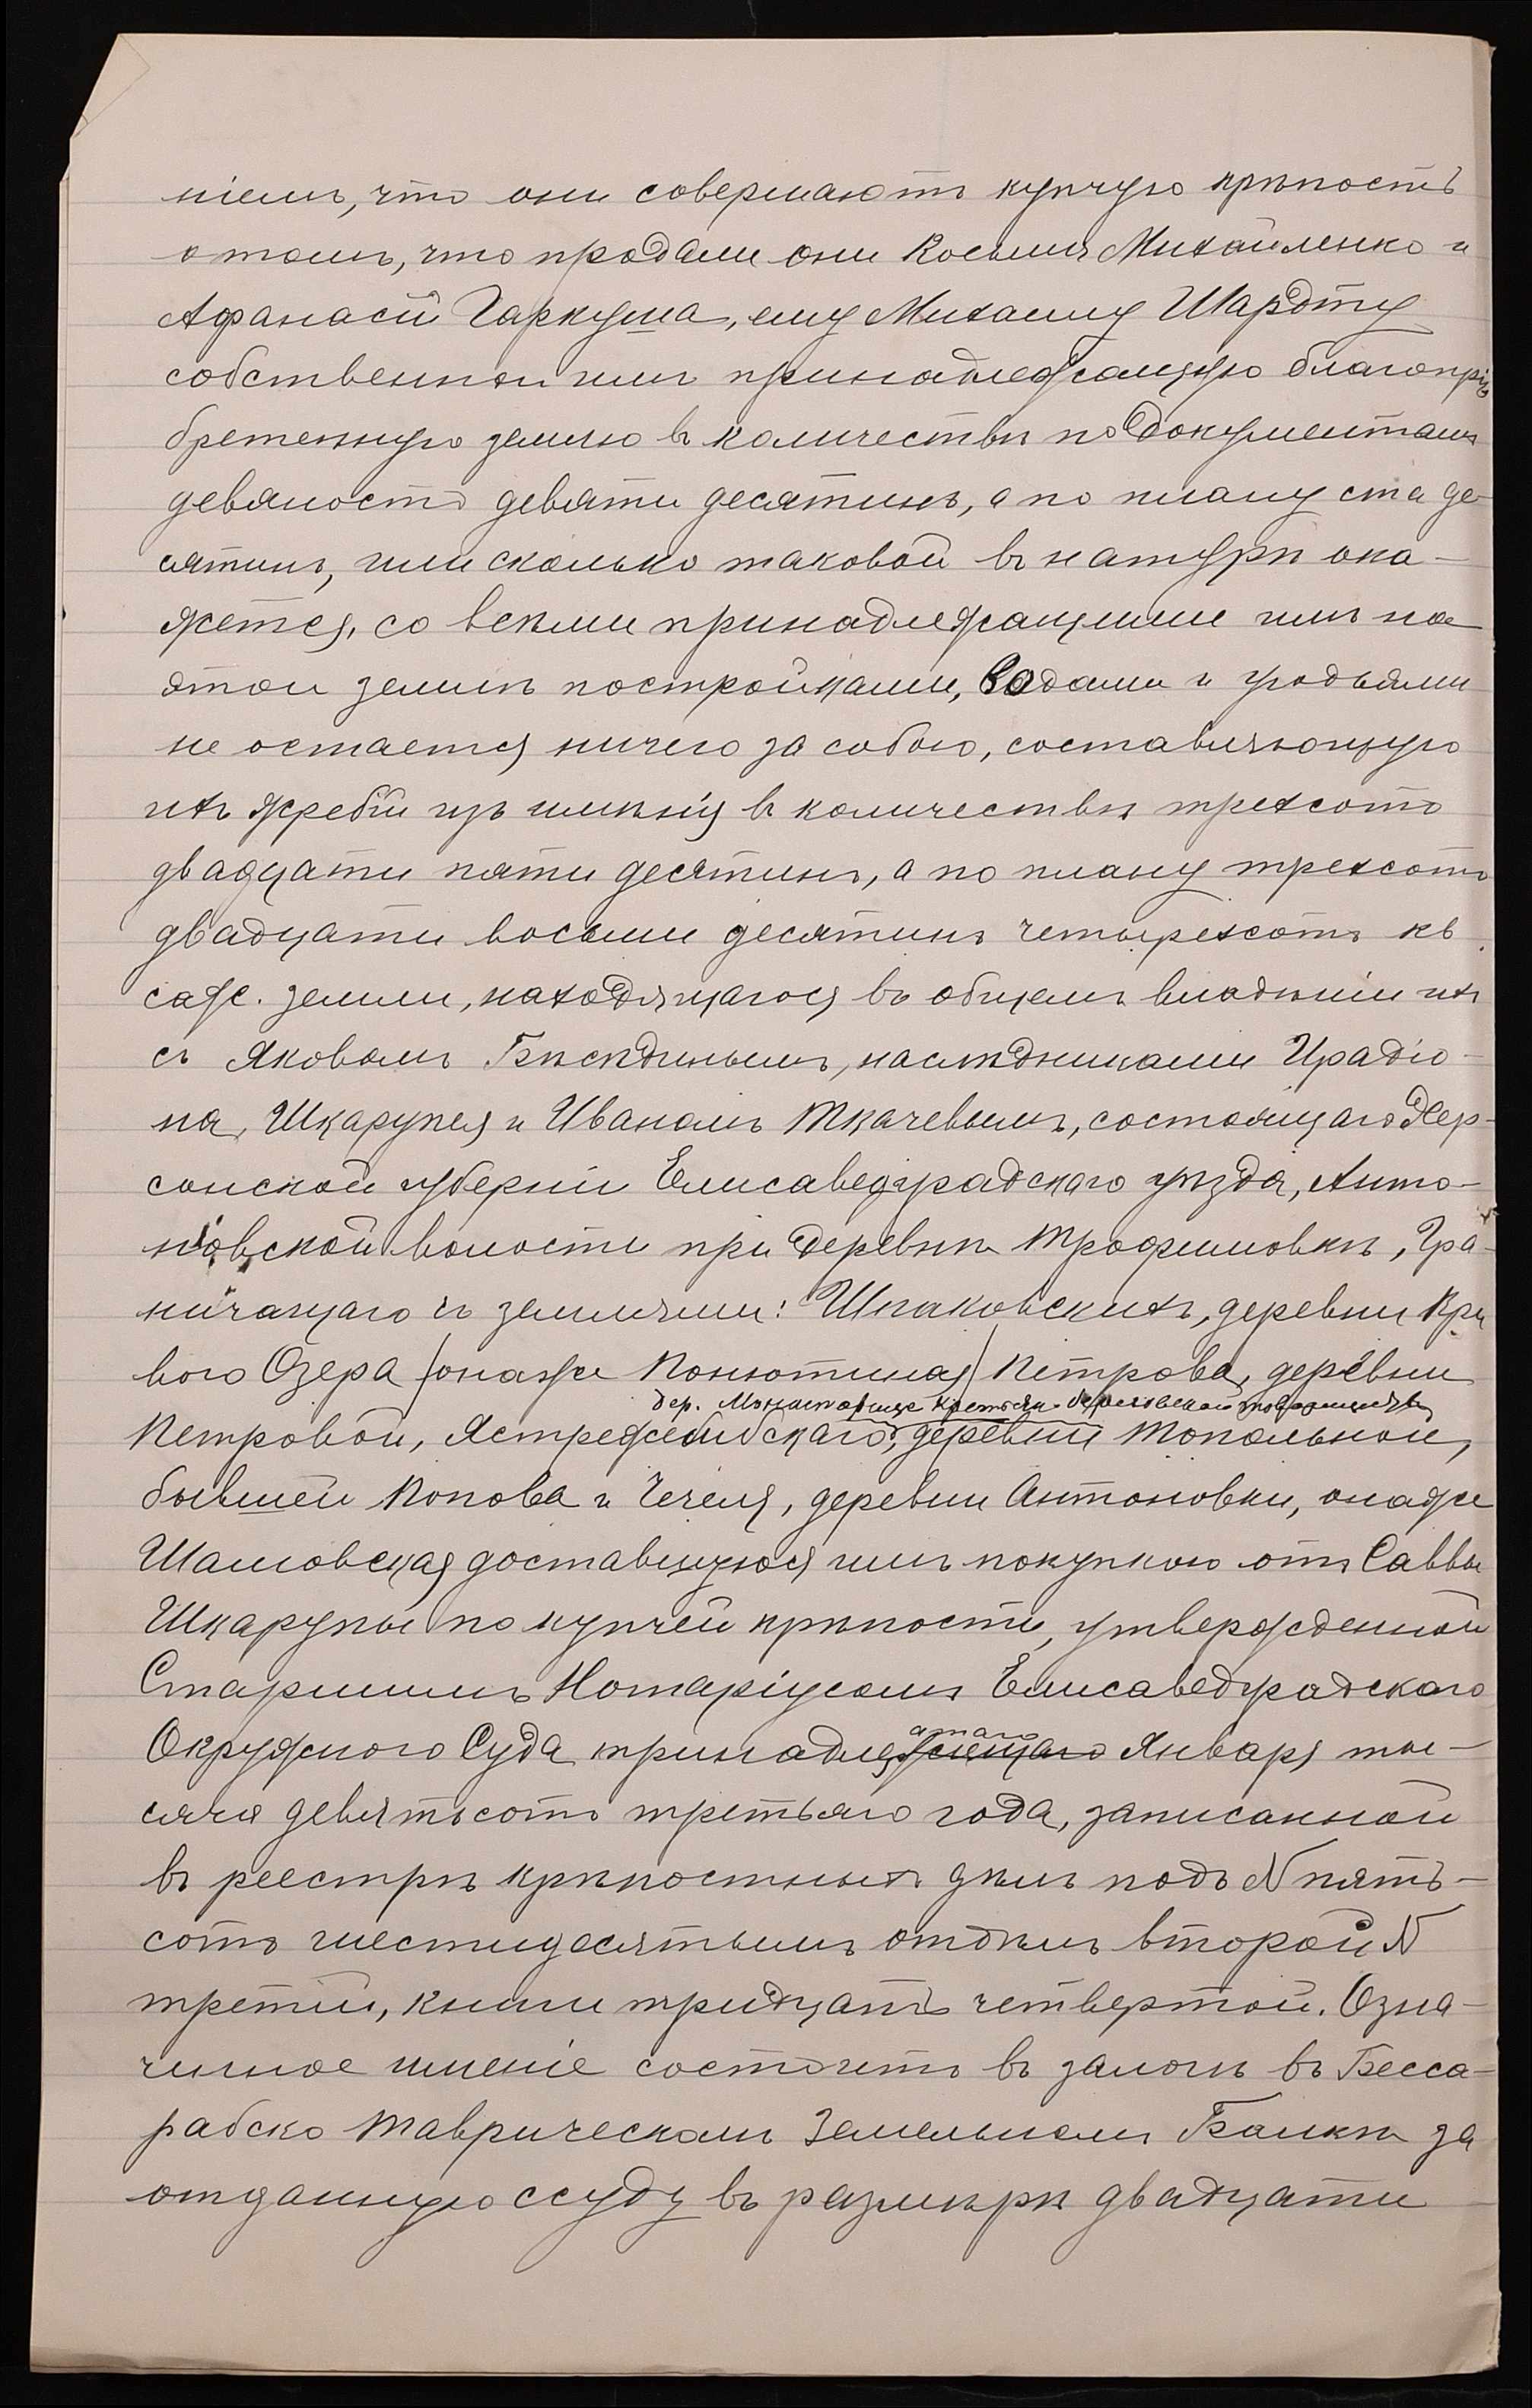 ніемъ, что они совершаютъ купчую крѣпость
о томъ, что продали они Косьма Михайленко и
Афанасій Гаркуша, ему Михаилу Шардту
собственно имъ принадлежащую благопріо-
бретенную землю въ количествѣ по документамъ
девяносто девяти десятинъ, а по плану ста де-
сятинъ, или сколько таковой въ натурѣ ока-
жется, со всѣми принадлежащими имъ на
этой землѣ постройками, водами и угодьями
не остается ничего за собою, составляющую
ихъ жребій изъ имѣнія въ количествѣ трехсотъ
двадцати пяти десятинъ, а по плану трехсотъ
двадцати восьми десятинъ четырехсотъ кв.
саж. земли, находящагося въ общемъ владѣніи ихъ
съ Яковомъ Бѣсѣдинымъ, наслѣдниками Ирадіо-
на, Шкарупея и Иваномъ Ткачевымъ, состоящаго Хер-
сонской губерніи Елисаведградскаго уѣзда, Анто-
новской волости при деревнѣ Трофимовкѣ, Гра-
ничащаго съ землями: Шпаковскихъ, деревни Кри
вого Озера /онаже Конютиная/ Петрова, деревни
дер. Монастырище крестьян товарищества
Петровой, Ястрежембскаго, деревни Топольной,
бывшей Попова и Чечеля, деревни Антоновки, онаже
Шамовская доставшуюся имъ покупкою отъ Саввы
Шкарупы по купчей крѣпости, утвержденной
Старшимъ Нотаріусомъ Елисаведградскаго
атаго
Окружного Суда принадлежащаго Января ты-
сяча девятьсотъ третьяго года, записанной
въ реестрѣ крѣпостныхъ дѣлъ подъ N пять-
сотъ шестидесятымъ отдѣлъ второй N
третій, книги тридцать четвертой. Озна-
ченное имѣніе состоитъ въ залогѣ въ Бесса-
рабско Таврическомъ Земельномъ Банкѣ за
отданную ссуду въ размѣрѣ двадцати